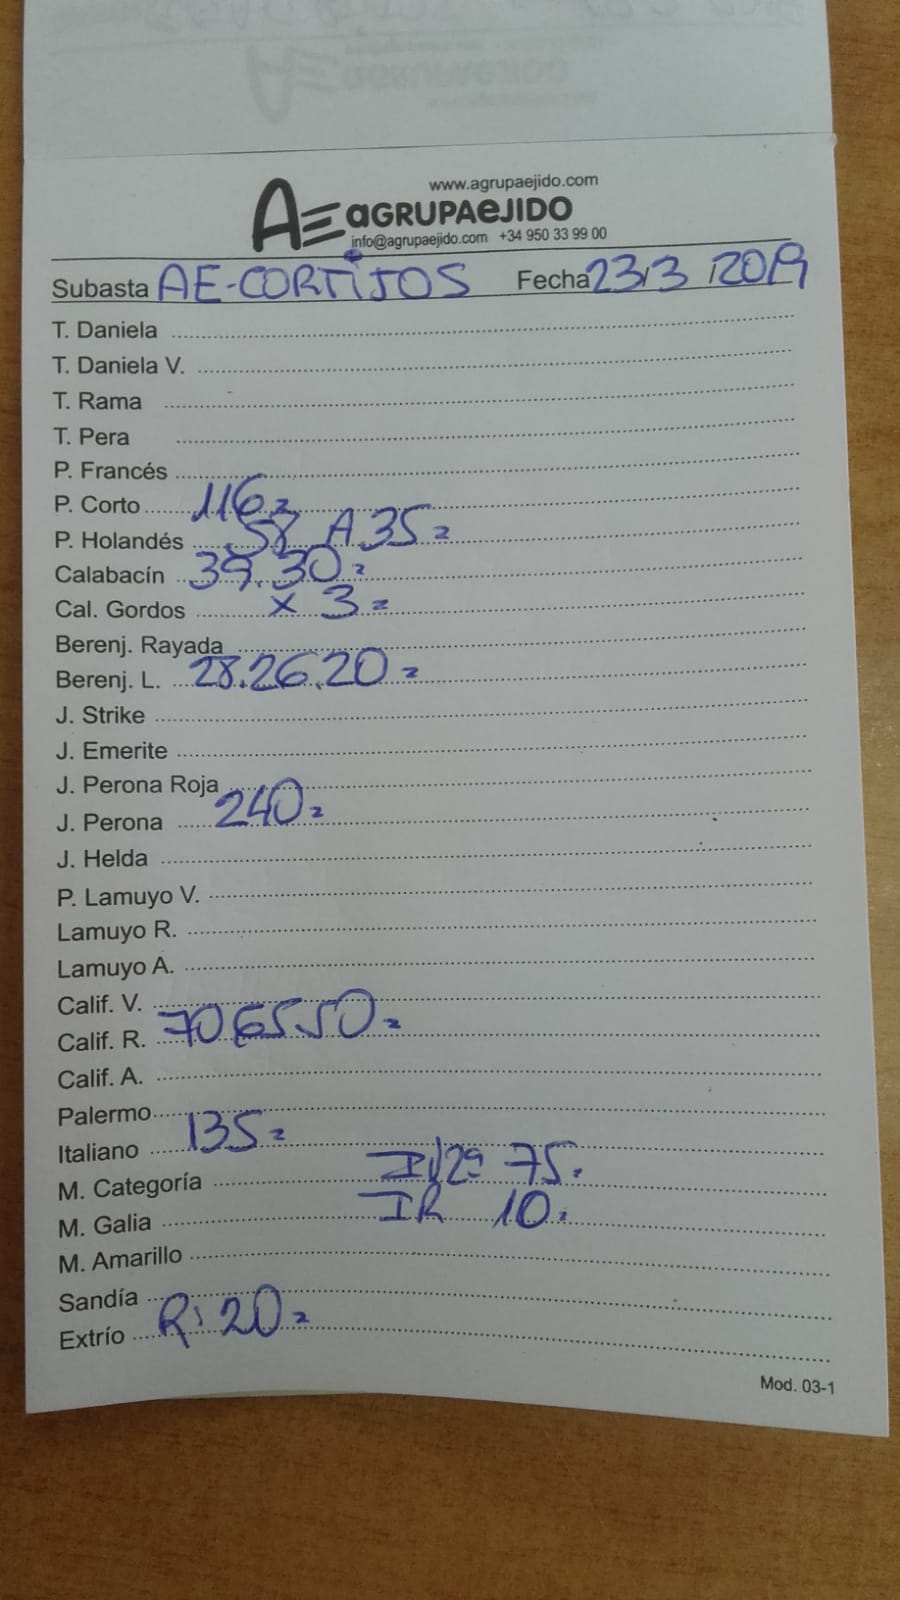 www.agrupaejido.com
AE aGRUPAeJIDO
info@agrupaejido.com +34 950 33 99 00
Subasta AE-CORTIJOS Fecha 23/3/2019
T. Daniela
T. Daniela V.
T. Rama
T. Pera
P. Francés
P. Corto 116=
P. Holandés 58 A 35=
Calabacín 39.30=
Cal. Gordos x 3=
Berenj. Rayada
Berenj. L. 28.26.20=
J. Strike
J. Emerite
J. Perona Roja
J. Perona 240=
J. Helda
P. Lamuyo V.
Lamuyo R.
Lamuyo A.
Calif. V.
Calif. R. 70 65 50=
Calif. A.
Palermo
Italiano 135=
M. Categoría IV2ª 75.
M. Galia IR 10.
M. Amarillo
Sandía
Extrío R: 20=
Mod. 03-1